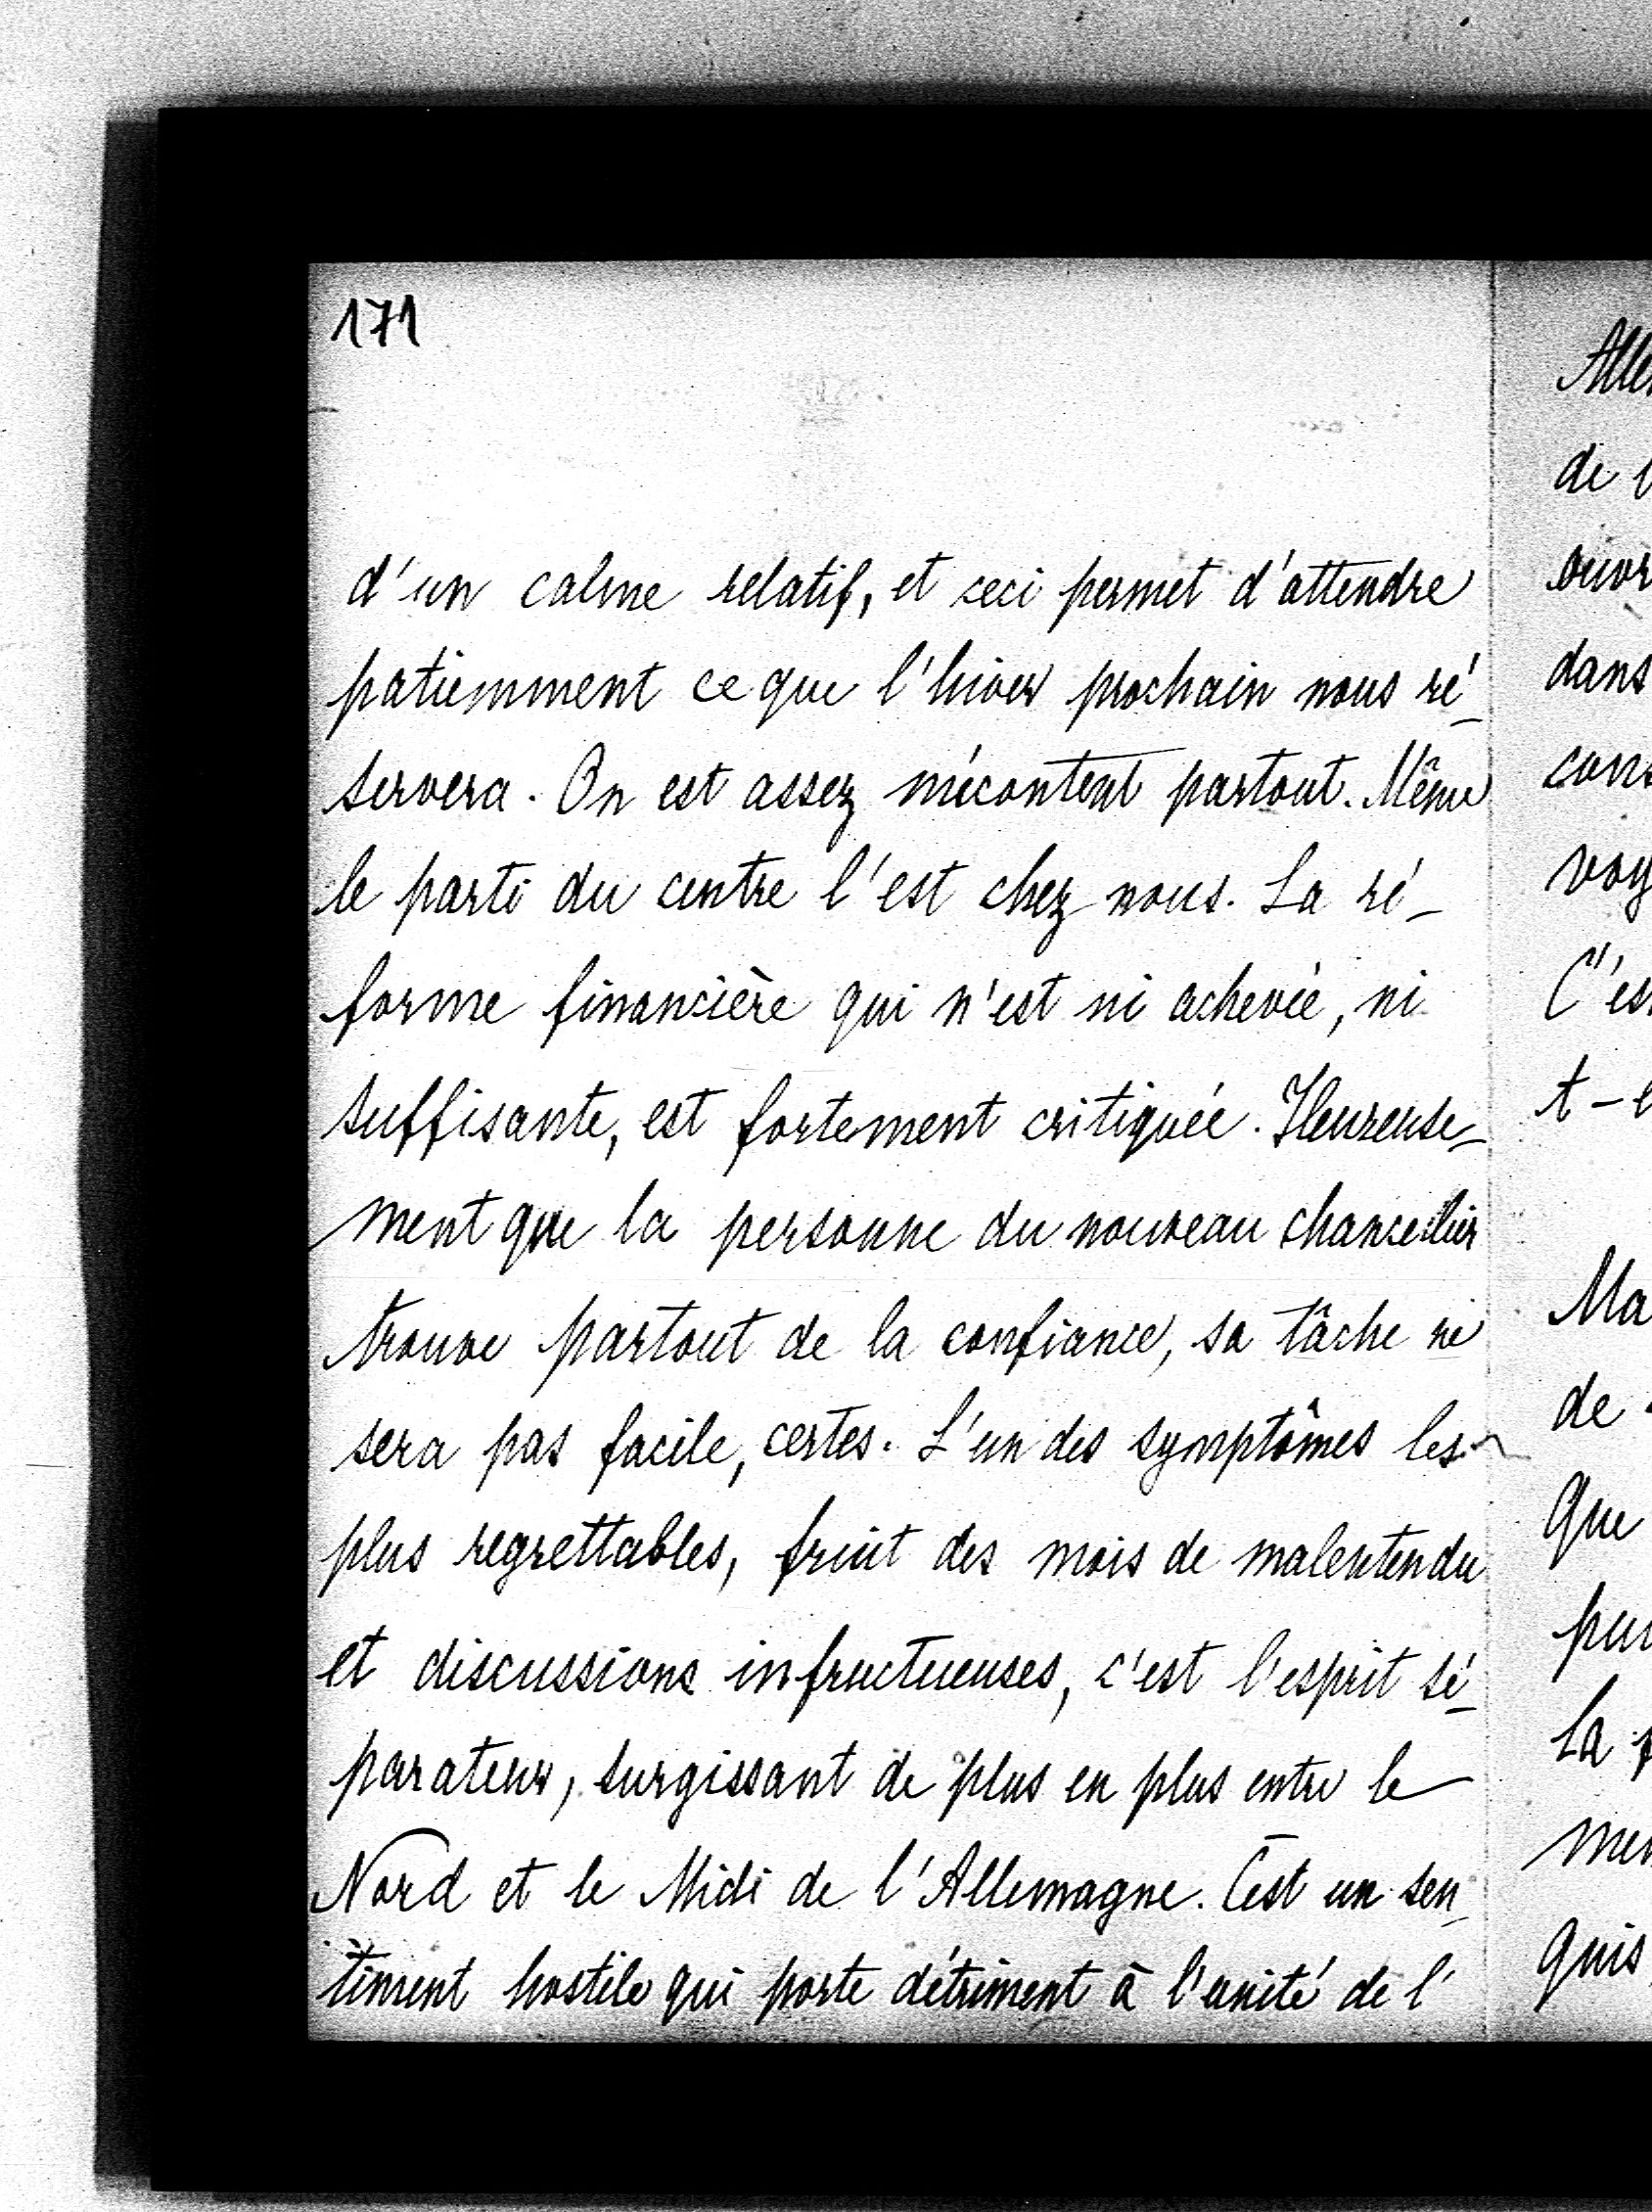 171
d'un calme relatif, et ceci permet d'attendre
patiemment ce que l'hiver prochain nous ré-
servera. On est assez mécontent partout. Même
le parti du centre l'est chez nous. La ré-
forme financière qui n'est ni achevée, ni
suffisante, est fortement critiquée. Heureuse-
ment que la personne du nouveau chancelier
trouve partout de la confiance, sa tâche ne
sera pas facile, certes. L'un des symptômes les
plus regrettables, fruit des mois de malentendu
et discussions infructueuses, c'est l'esprit sé-
parateur, surgissant de plus en plus entre le
Nord et le Midi de l'Allemagne. C'est un sen-
timent hostile qui porte détriment à l'unité de l'
de
dans
voy
t-
Ma
de
que
la
quis